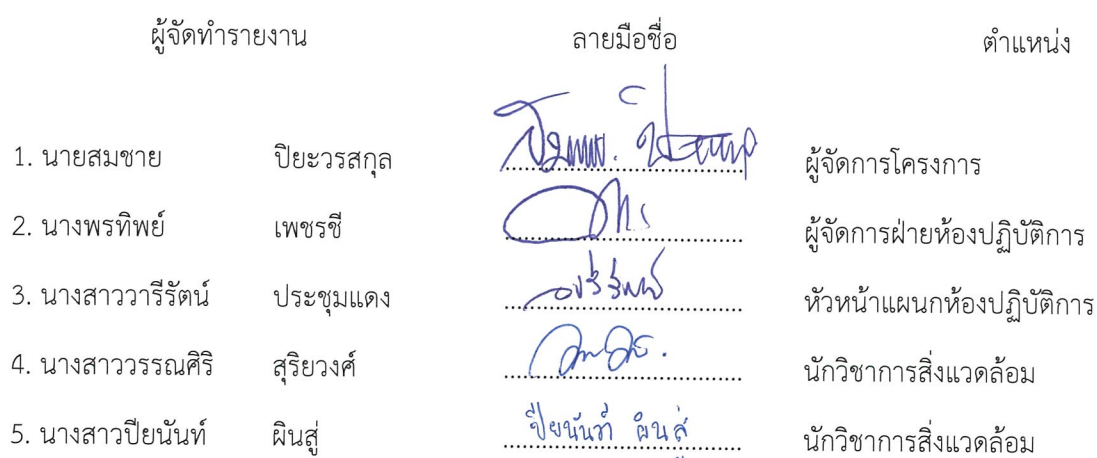 ผู้จัดทำรายงาน ลายมือชื่อ ตำแหน่ง
1. นายสมชาย ปิยะวรสกุล ผู้จัดการโครงการ
2. นางพรทิพย์ เพชรชี ผู้จัดการฝ่ายห้องปฏิบัติการ
3. นางสาววารีรัตน์ ประชุมแดง หัวหน้าแผนกห้องปฏิบัติการ
4. นางสาววรรณศิริ สุริยวงศ์ นักวิชาการสิ่งแวดล้อม
5. นางสาวปิยนันท์ ผินสู่ ปิยนันท์ ผินสู่ นักวิชาการสิ่งแวดล้อม